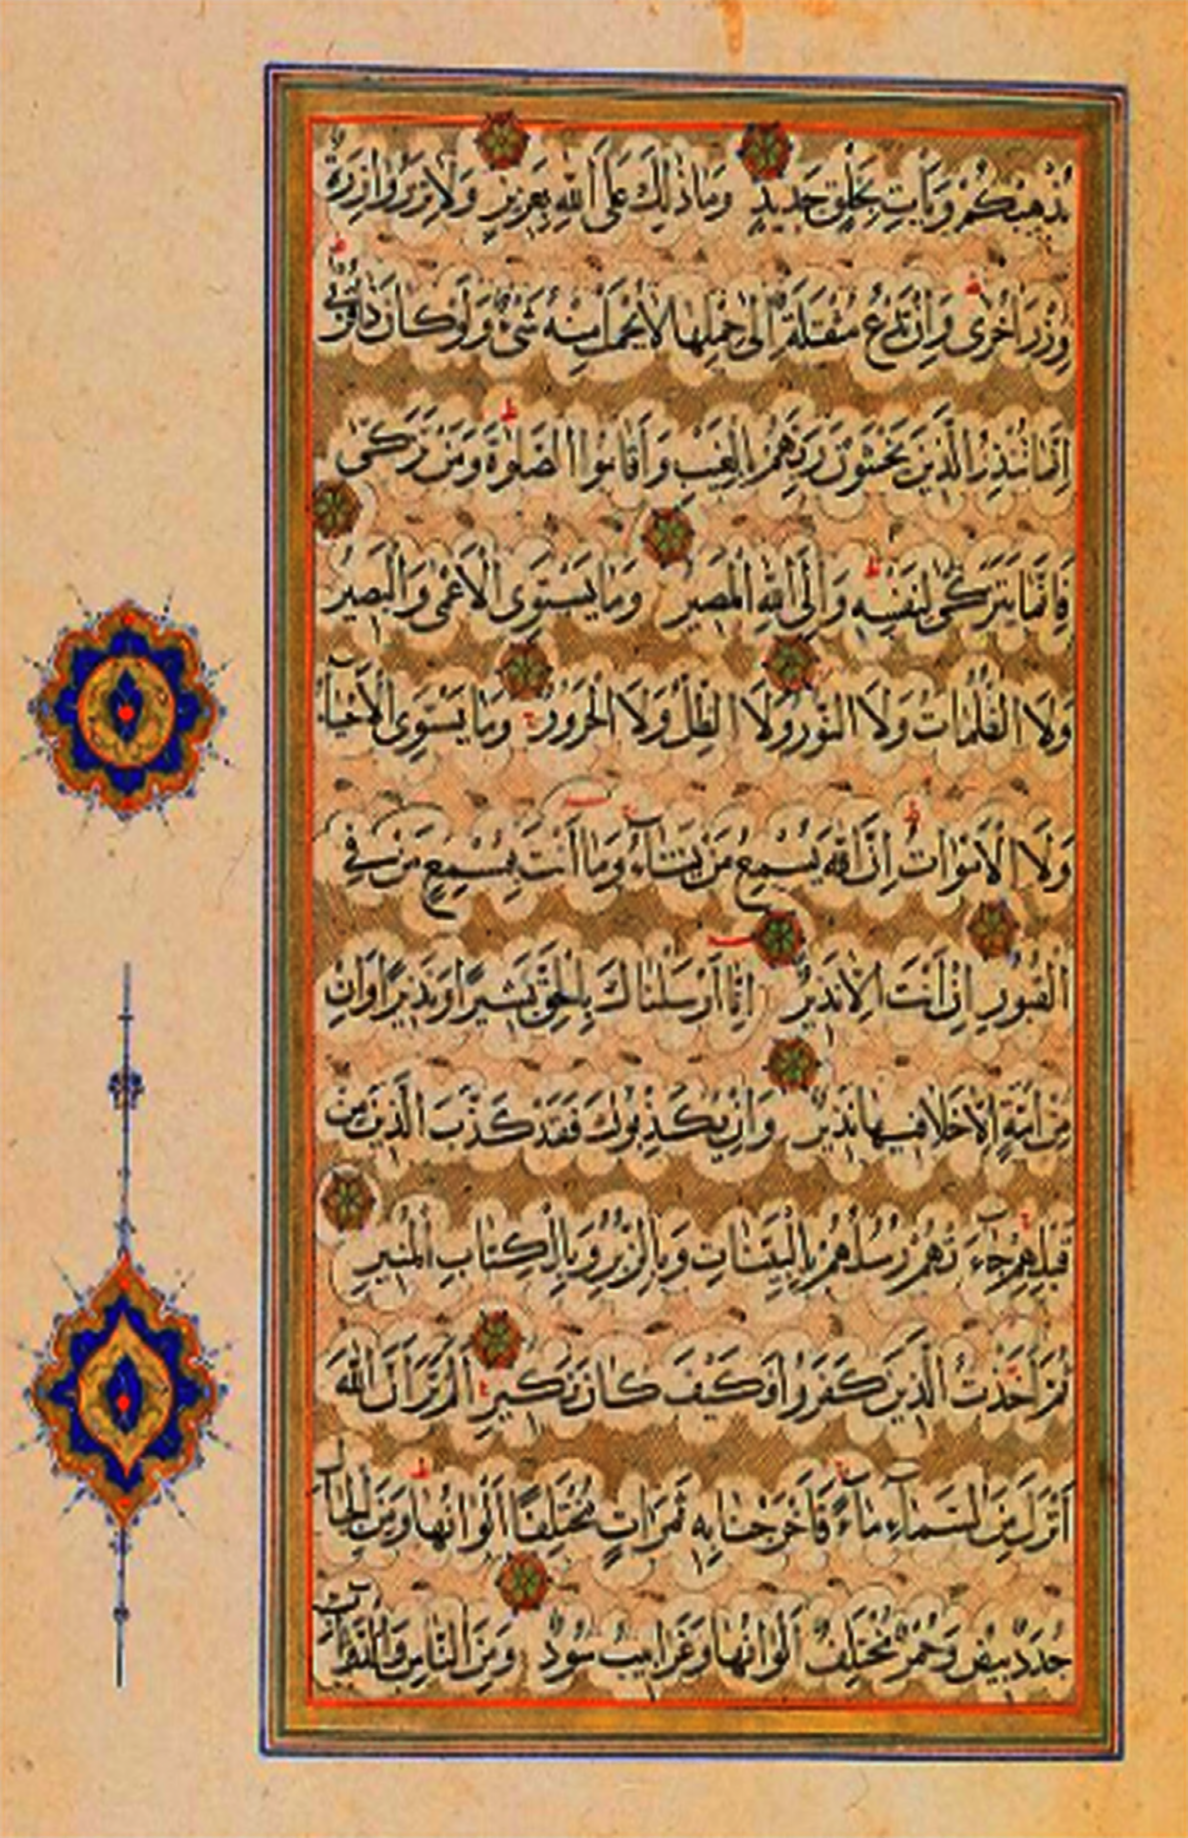 يُذْهِبْكُمْ وَيَأْتِ بِخَلْقٍ جَدِيدٍ وَمَا ذٰلِكَ عَلَى اللّٰهِ بِعَزِيزٍ وَلَا تَزِرُ وَازِرَةٌ
وِزْرَ اُخْرٰى وَاِنْ تَدْعُ مُثْقَلَةٌ اِلٰى حِمْلِهَا لَا يُحْمَلْ مِنْهُ شَىْءٌ وَلَوْ كَانَ ذَا قُرْبٰى
اِنَّمَا تُنْذِرُ الَّذِينَ يَخْشَوْنَ رَبَّهُمْ بِالْغَيْبِ وَاَقَامُوا الصَّلٰوةَ وَمَنْ تَزَكّٰى
فَاِنَّمَا يَتَزَكّٰى لِنَفْسِهٖ وَاِلَى اللّٰهِ الْمَصِيرُ وَمَا يَسْتَوِى الْاَعْمٰى وَالْبَصِيرُ
وَلَا الظُّلُمَاتُ وَلَا النُّورُ وَلَا الظِّلُّ وَلَا الْحَرُورُ وَمَا يَسْتَوِى الْاَحْيَاءُ
وَلَا الْاَمْوَاتُ اِنَّ اللّٰهَ يُسْمِعُ مَنْ يَشَاءُ وَمَا اَنْتَ بِمُسْمِعٍ مَنْ فِى
الْقُبُورِ اِنْ اَنْتَ اِلَّا نَذِيرٌ اِنَّا اَرْسَلْنَاكَ بِالْحَقِّ بَشِيرًا وَنَذِيرًا وَاِنْ
مِنْ اُمَّةٍ اِلَّا خَلَا فِيهَا نَذِيرٌ وَاِنْ يُكَذِّبُوكَ فَقَدْ كَذَّبَ الَّذِينَ مِنْ
قَبْلِهِمْ جَاءَتْهُمْ رُسُلُهُمْ بِالْبَيِّنَاتِ وَبِالزُّبُرِ وَبِالْكِتَابِ الْمُنِيرِ
ثُمَّ اَخَذْتُ الَّذِينَ كَفَرُوا فَكَيْفَ كَانَ نَكِيرِ اَلَمْ تَرَ اَنَّ اللّٰهَ
اَنْزَلَ مِنَ السَّمَاءِ مَاءً فَاَخْرَجْنَا بِهٖ ثَمَرَاتٍ مُخْتَلِفًا اَلْوَانُهَا وَمِنَ الْجِبَالِ
جُدَدٌ بِيضٌ وَحُمْرٌ مُخْتَلِفٌ اَلْوَانُهَا وَغَرَابِيبُ سُودٌ وَمِنَ النَّاسِ وَالدَّوَابِّ